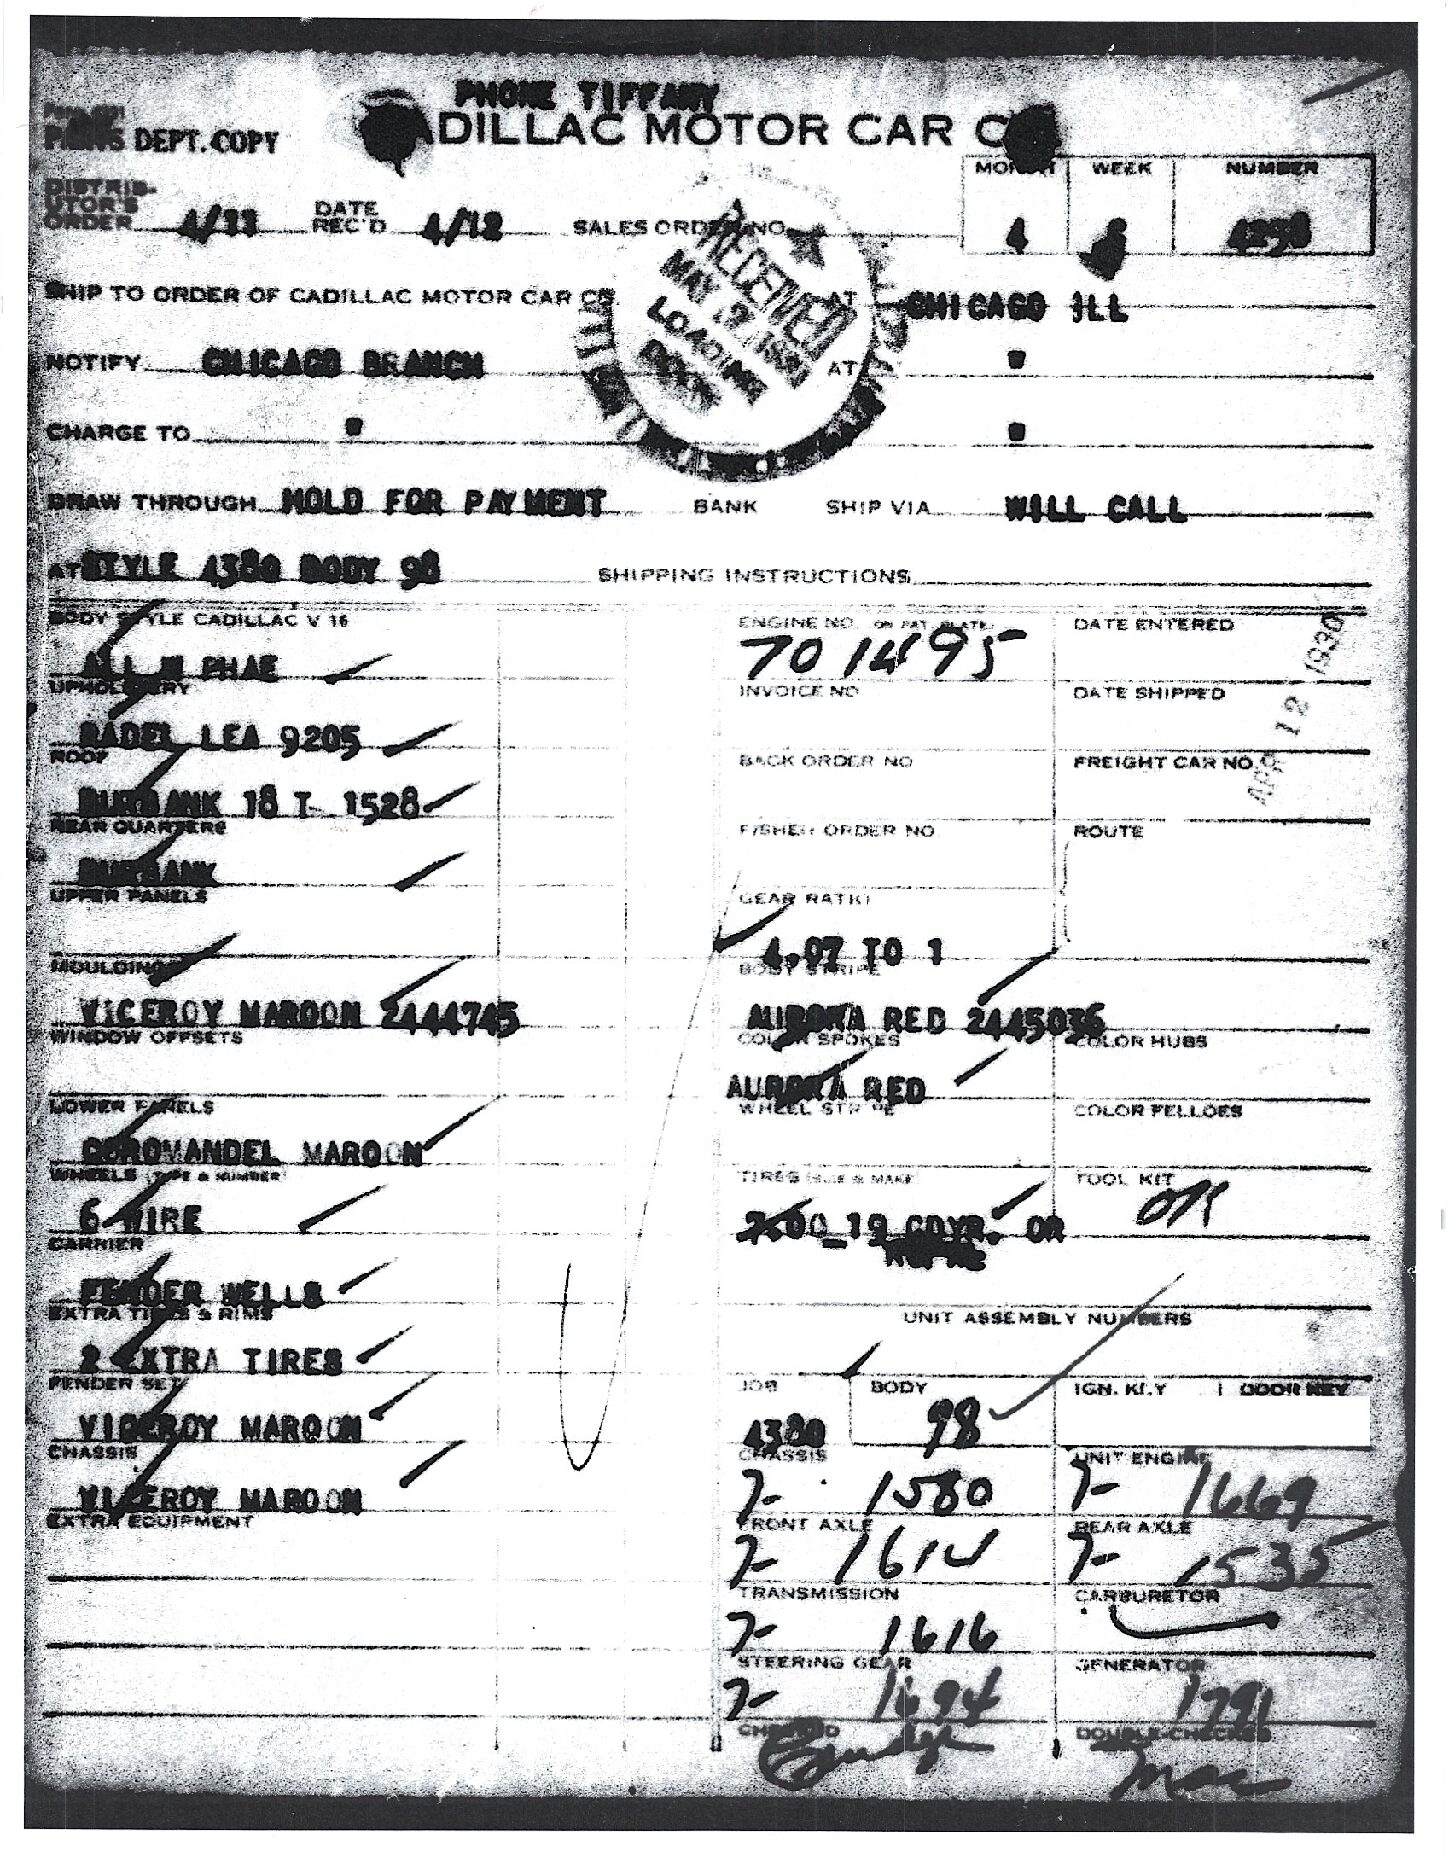 PHONE TIFFANY
DEPT. COPY
DILLAC MOTOR CAR C
MONTH WEEK NUMBER
DISTRIB-
UTOR'S
ORDER
DATE
REC'D 4/12
SALES ORDER NO.
4
SHIP TO ORDER OF CADILLAC MOTOR CAR CO. AT CHICAGO ILL
NOTIFY CHICAGO BRANCH AT "
CHARGE TO " "
RECEIVED
MAY
LOADING
DOCK
DRAW THROUGH HOLD FOR PAYMENT BANK SHIP VIA WILL CALL
AT STYLE 4380 BODY 98 SHIPPING INSTRUCTIONS
BODY STYLE CADILLAC V 16
ALL W PHAE
UPHOLSTERY
RADEL LEA 9205
ROOF
BURBANK 18 T 1528
REAR QUARTERS
BURBANK
UPPER PANELS
MOULDING
VICEROY MAROON 2444745
WINDOW OFFSETS
LOWER PANELS
COROMANDEL MAROON
WHEELS (TYPE & NUMBER)
6 WIRE
CARRIER
FENDER WELLS
EXTRA TIRES & RIMS
2 EXTRA TIRES
FENDER SET
VICEROY MAROON
CHASSIS
VICEROY MAROON
EXTRA EQUIPMENT
ENGINE NO. ON PAT. PLATE
701495
INVOICE NO
BACK ORDER NO
FISHER ORDER NO
GEAR RATIO
4.07 TO 1
BODY STRIPE
AURORA RED 2445036
COLOR SPOKES
AURORA RED
WHEEL STRIPE
TIRES (SIZE & MAKE
7.00_19 GDYR. OR
DATE ENTERED
DATE SHIPPED
APR 12 1930
FREIGHT CAR NO.
ROUTE
COLOR HUBS
COLOR FELLOES
TOOL KIT
OK
UNIT ASSEMBLY NUMBERS
JOB BODY IGN. KEY DOOR KEY
4380 98
CHASSIS UNIT ENGINE
7- 1580 7- 1669
FRONT AXLE REAR AXLE
7- 1614 7- 1535
TRANSMISSION CARBURETOR
7- 1616
STEERING GEAR GENERATOR
7- 1694 1791
CHECKED DOUBLE CHECKED
Mac